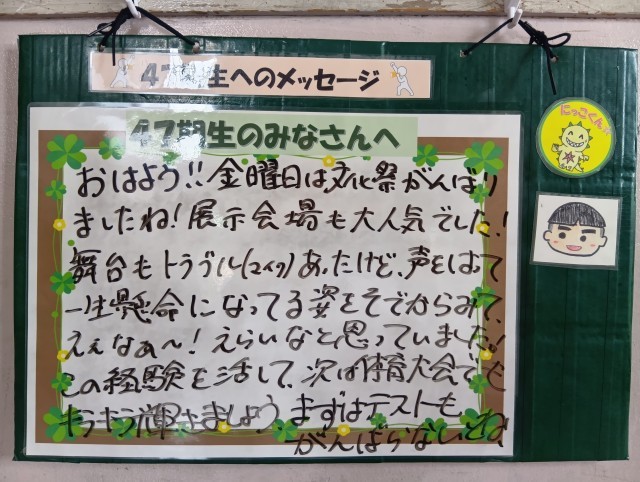 47期生へのメッセージ
47期生のみなさんへ
おはよう!! 金曜日は、文化祭がんばり
ましたね! 展示会場も大人気でした!
舞台もトラブル(マイク)あったけど、声をはって
一生懸命になってる姿をそでからみて、
ええなぁ〜! えらいなと思っていました!
この経験を活して、次は体育大会でも
キラキラ輝きましょう まずはテストも
がんばらないとね
にっこくん